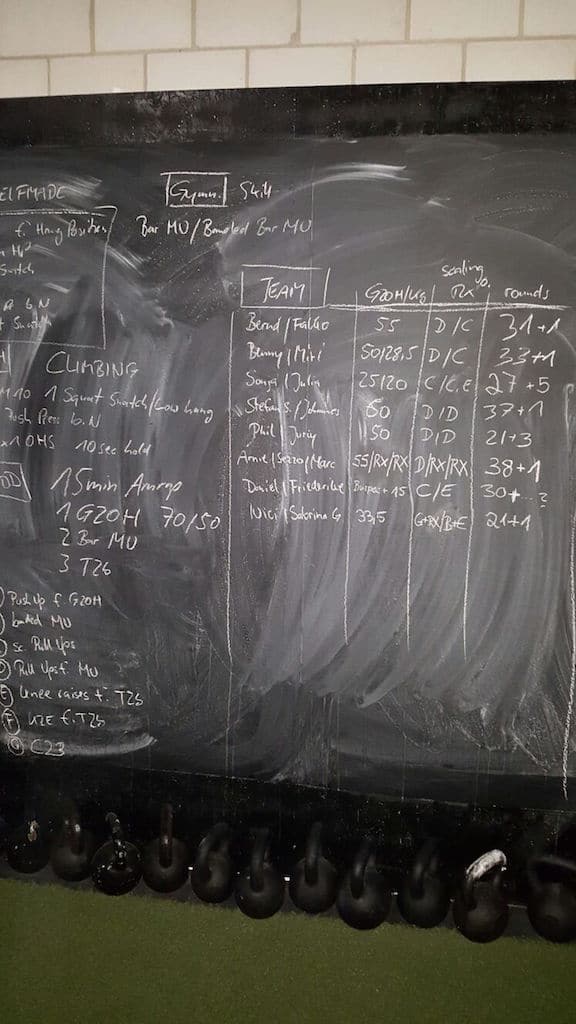 ELFMADE
f. Hang Position
Snatch
Gymn. Skill
Bar MU/Banded Bar MU
CLIMBING
1 Squat Snatch/Low hang
Push Press b.N
OHS 10sec hold
15min Amrap
1 G2OH 70/50
2 Bar MU
3 T2b
Push Up f. G2OH
banded MU
sc. Pull Ups
Pull Ups f. MU
E knee raises f. T2b
F K2E f. T2b
G C23
TEAM G2OH/KG scaling o. RX rounds
Bernd/Falko 55 D/C 31+1
Benny/Miri 50/28,5 D/C 33+1
Sonja/Julia 25/20 C/C,E 27+5
Stefan S./Johannes 60 D/D 37+1
Phil/Juriy 50 D/D 21+3
Arnie/Sezzo/Marc 55/RX/RX D/RX/RX 38+1
Daniel/Friederike Burpees+15 C/E 30+...?
Nici/Sabrina G 33,5 G+RX/B+E 21+1